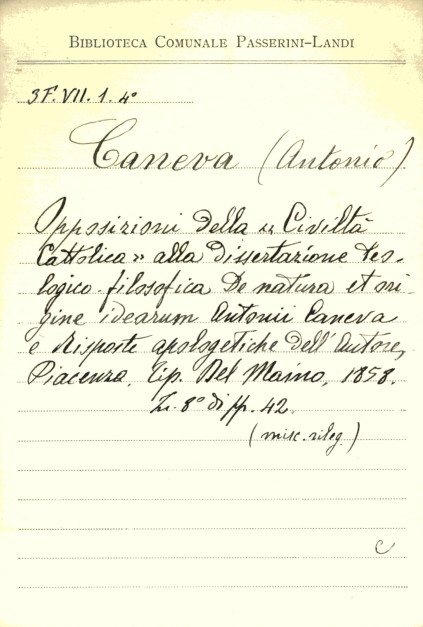 BIBLIOTECA COMUNALE PASSERINI-LANDI
3F.VII.1.4°
Caneva (Antonio)
Opposizioni della "Civiltà
Cattolica" alla dissertazione teo-
logico-filosofica De natura et ori
gine idearum Antonii Caneva
e risposte apologetiche dell'Autore,
Piacenza, Tip. Del Maino, 1858.
In-8° di pp. 42.
(misc. rileg.)
C